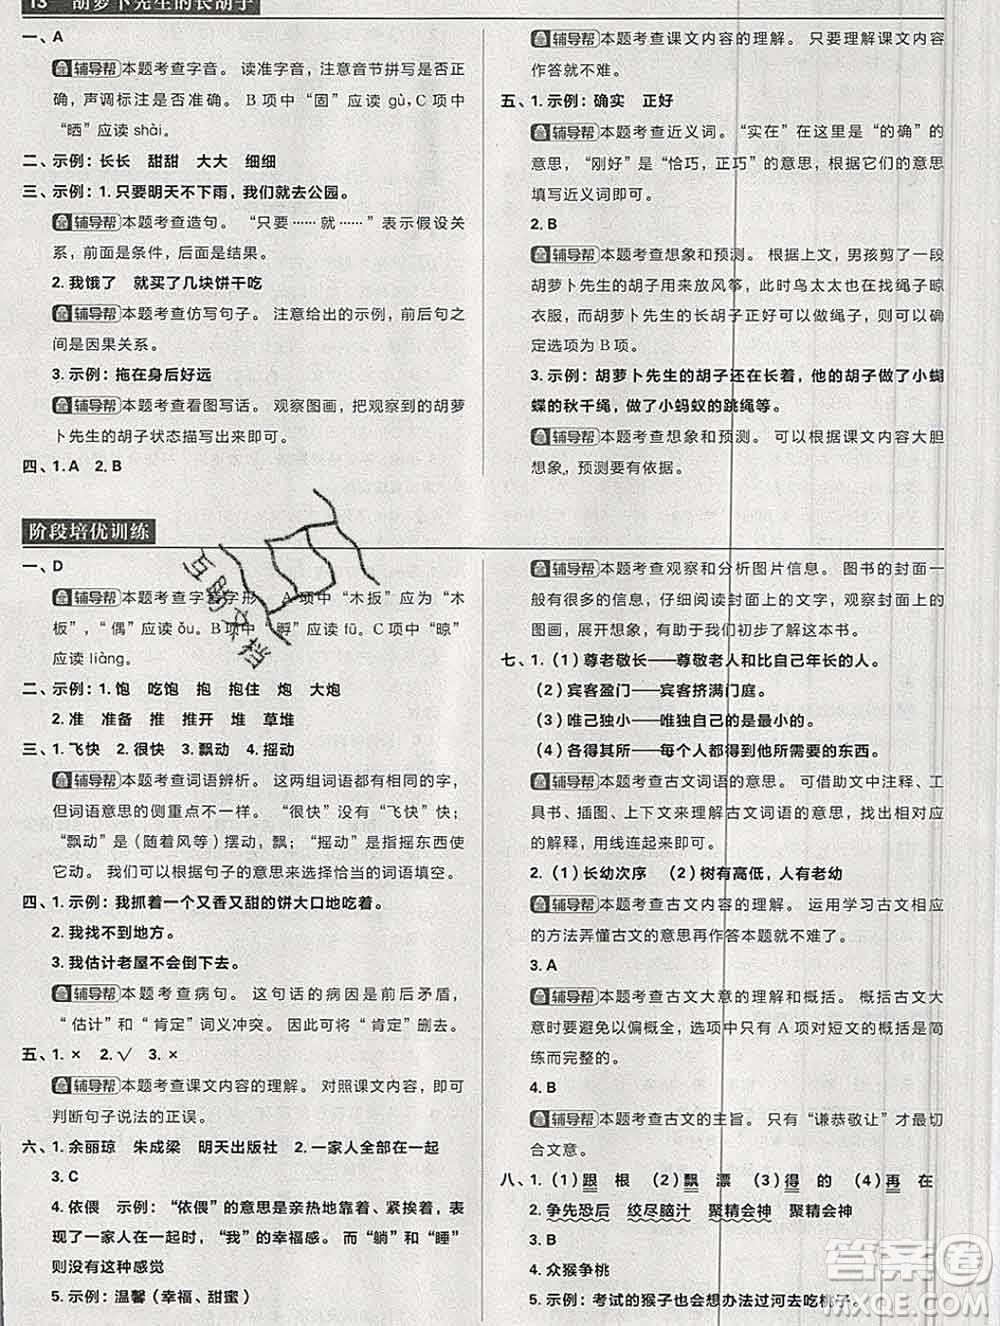 13 胡萝卜先生的长胡子
一、A
辅导帮 本题考查字音。读准字音，注意音节拼写是否正
确，声调标注是否准确。B项中“固”应读 gù，C项中
“晒”应读 shài。
二、示例：长长 甜甜 大大 细细
三、示例：1.只要明天不下雨，我们就去公园。
辅导帮 本题考查造句。“只要……就……”表示假设关
系，前面是条件，后面是结果。
2.我饿了 就买了几块饼干吃
辅导帮 本题考查仿写句子。注意给出的示例，前后句之
间是因果关系。
3.示例：拖在身后好远
辅导帮 本题考查看图写话。观察图画，把观察到的胡萝
卜先生的胡子状态描写出来即可。
四、1.A 2.B
辅导帮 本题考查课文内容的理解。只要理解课文内容
作答就不难。
五、1.示例：确实 正好
辅导帮 本题考查近义词。“实在”在这里是“的确”的
意思，“刚好”是“恰巧，正巧”的意思，根据它们的意思
填写近义词即可。
2.B
辅导帮 本题考查想象和预测。根据上文，男孩剪了一段
胡萝卜先生的胡子用来放风筝，此时鸟太太也在找绳子晾
衣服，而胡萝卜先生的长胡子正好可以做绳子，则可以确
定选项为B项。
3.示例：胡萝卜先生的胡子还在长着，他的胡子做了小蝴
蝶的秋千绳，做了小蚂蚁的跳绳等。
辅导帮 本题考查想象和预测。可以根据课文内容大胆
想象，预测要有依据。
阶段培优训练
一、D
辅导帮 本题考查字音字形。A项中“木扳”应为“木
板”，“偶”应读 ǒu。B项中“孵”应读 fū。C项中“晾”
应读 liàng。
二、示例：1.饱 吃饱 抱 抱住 炮 大炮
2.准 准备 推 推开 堆 草堆
三、1.飞快 2.很快 3.飘动 4.摇动
辅导帮 本题考查词语辨析。这两组词语都有相同的字，
但词语意思的侧重点不一样。“很快”没有“飞快”快；
“飘动”是（随着风等）摆动，飘；“摇动”是指摇东西使
它动。根据句子的意思来选择恰当的词语填空。
四、1.示例：我抓着一个又香又甜的饼大口地吃着。
2.我找不到地方。
3.我估计老屋不会倒下去。
辅导帮 本题考查病句。这句话的病因是前后矛盾，
“估计”和“肯定”词义冲突。可将“肯定”删去。
五、1.× 2.√ 3.×
辅导帮 本题考查课文内容的理解。对照课文内容，即可
判断句子说法的正误。
六、1.余丽琼 朱成梁 明天出版社 2.一家人全部在一起
3.C
4.依偎 示例：“依偎”的意思是亲热地靠着、紧挨着，用
于家人在一起时，“我”的幸福感。而“躺”和“睡”
就没有这种感觉
5.示例：温馨（幸福、甜蜜）
辅导帮 本题考查观察和分析图片信息。图书的封面一
般有很多的信息，仔细阅读封面上的文字，观察封面上的
图画，展开想象，有助于我们初步了解这本书。
七、1.（1）尊老敬长——尊敬老人和比自己年长的人。
（2）宾客盈门——宾客挤满门庭。
（3）唯己独小——唯独自己的是最小的。
（4）各得其所——每个人都得到他所需要的东西。
辅导帮 本题考查古文词语的意思。可借助文中注释、工
具书、插图、上下文来理解古文词语的意思，找出相应
的解释，用线连起来即可。
2.（1）长幼次序 （2）树有高低，人有老幼
辅导帮 本题考查古文内容的理解。运用学习古文相应
的方法弄懂古文的意思再作答本题就不难了。
3.A
辅导帮 本题考查古文大意的理解和概括。概括古文大
意时要避免以偏概全，选项中只有A项对短文的概括是简
练而完整的。
4.B
辅导帮 本题考查古文的主旨。只有“谦恭敬让”才最切
合文意。
八、1.（1）跟 根 （2）飘 漂 （3）得 的 （4）再 在
2.争先恐后 绞尽脑汁 聚精会神 聚精会神
3.B
4.众猴争桃
5.示例：考试的猴子也会想办法过河去吃桃子。
互助文档
答案圈
MXQE.COM